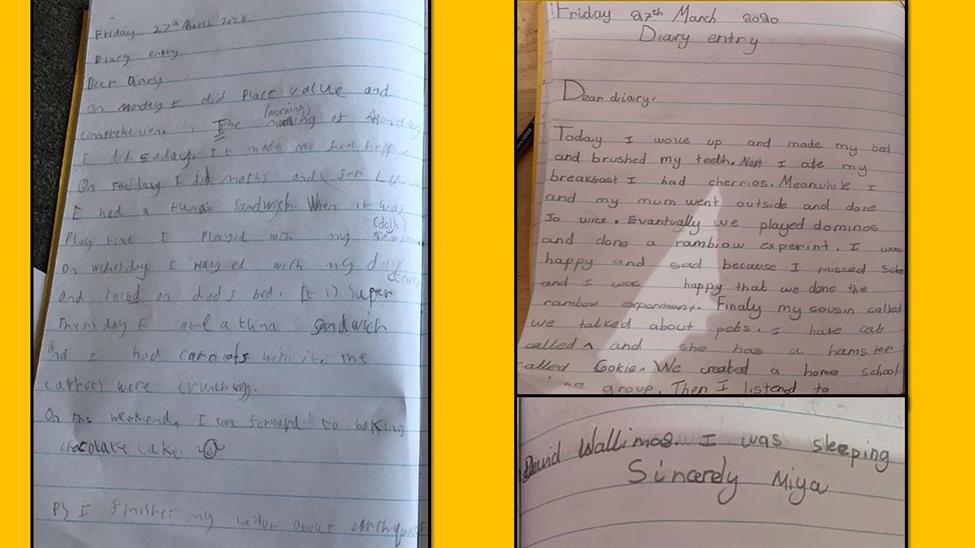 Friday 27th March 2020
Diary entry
Dear Diary
on monday I did Place value and
comprehension. The (morning) of Monday
I did
On I did maths and
I had a tuna sandwich. When it was
Play time I Played with my (dolls)
on wednesday I with my
and on dad's bed. It is Super
Thersday I a tuna sandwich
and I had carrots with it, the
carrots were
On the weekend, I look forward to baking
chocolate cake.
PS I finished my about
Friday 27th March 2020
Diary entry
Dear diary,
Today I woke up and made my bed
and brushed my teeth. Next I ate my
breakfast I had cherrios. Meanwhile I
and my mum went outside and done
Jo wicx. Evantually we played dominos
and done a rambiow experint. I was
happy and sad because I missed
and I was happy that we done the
rambow Finaly my cousin called
we talked about pebs. I have cat
called ^ and she has a hamster
called Cookie. We created a home school
group. Then I listend to
David Wallimas. I was sleeping
Sincerdy Miya